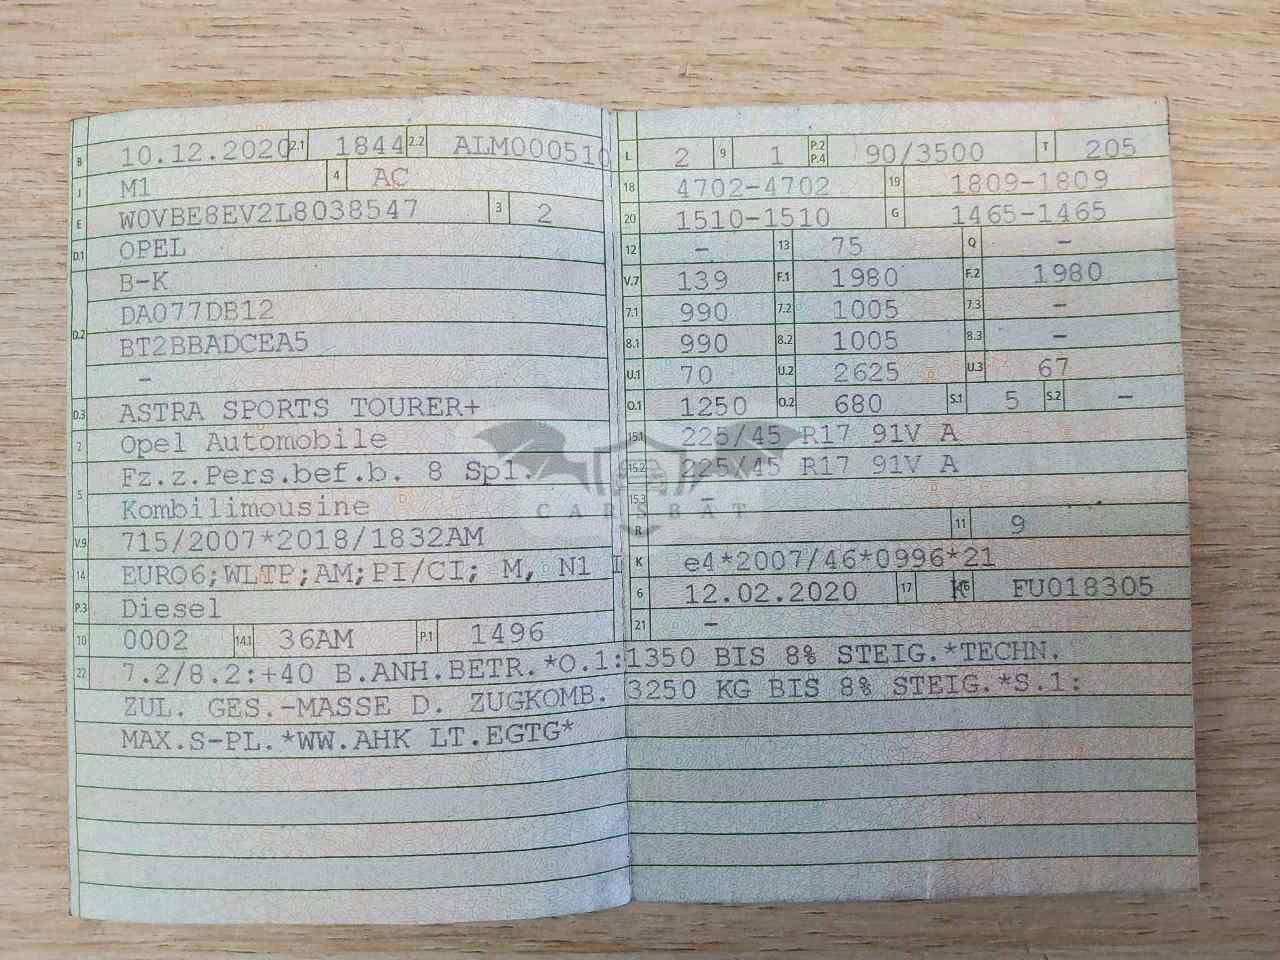 B 10.12.2020 2.1 1844 2.2 ALM000510
J M1 4 AC
E W0VBE8EV2L8038547 3 2
D.1 OPEL
B-K
DA077DB12
D.2 BT2BBADCEA5
-
D.3 ASTRA SPORTS TOURER+
2 Opel Automobile
Fz.z.Pers.bef.b. 8 Spl.
5 Kombilimousine
V.9 715/2007*2018/1832AM
14 EURO6;WLTP;AM;PI/CI; M, N1 I
P.3 Diesel
10 0002 14.1 36AM P.1 1496
L 2 9 1 P.2 P.4 90/3500 T 205
18 4702-4702 19 1809-1809
20 1510-1510 G 1465-1465
12 - 13 75 Q -
V.7 139 F.1 1980 F.2 1980
7.1 990 7.2 1005 7.3 -
8.1 990 8.2 1005 8.3 -
U.1 70 U.2 2625 U.3 67
O.1 1250 O.2 680 S.1 5 S.2 -
15.1 225/45 R17 91V A
15.2 225/45 R17 91V A
15.3 -
R 11 9
K e4*2007/46*0996*21
6 12.02.2020 17 K 16 FU018305
21 -
22 7.2/8.2:+40 B.ANH.BETR.*O.1:1350 BIS 8% STEIG.*TECHN.
ZUL. GES.-MASSE D. ZUGKOMB. 3250 KG BIS 8% STEIG.*S.1:
MAX.S-PL.*WW.AHK LT.EGTG*
CARSBAT